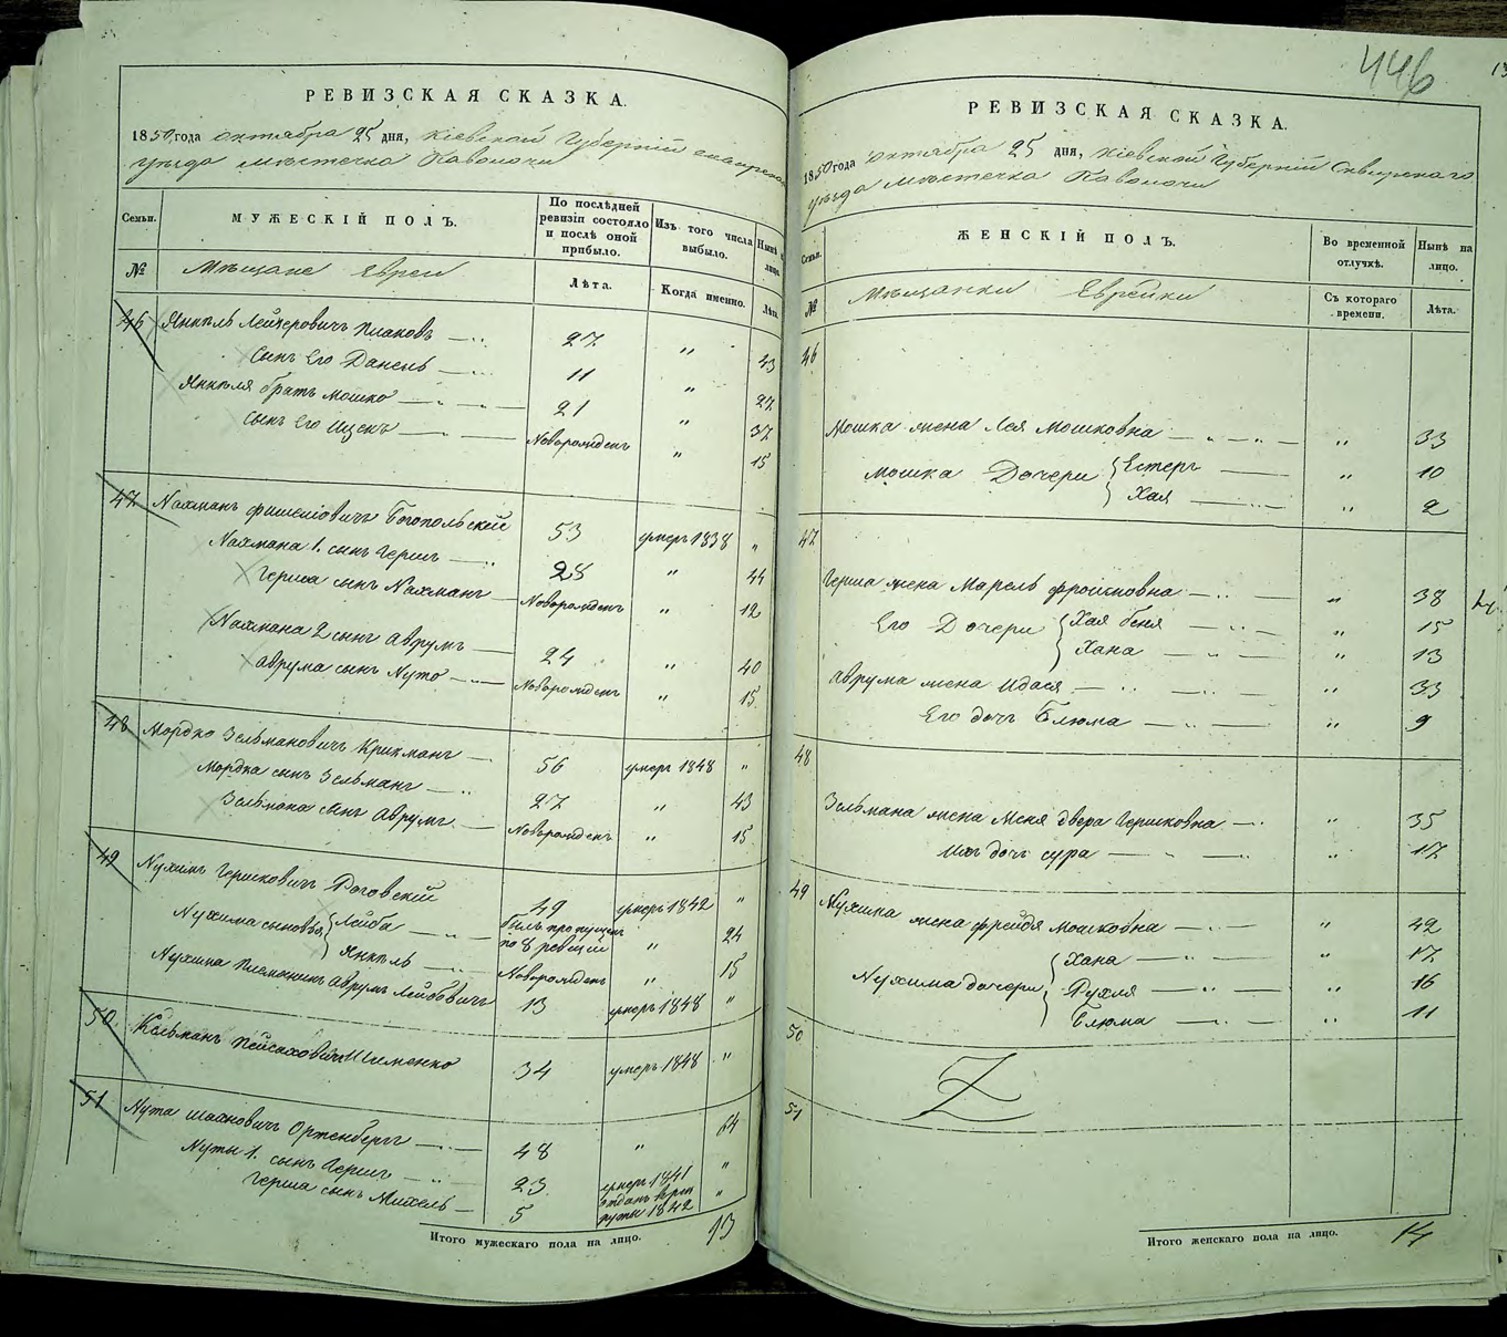 РЕВИЗСКАЯ СКАЗКА.
1850 года октября 25 дня, Кіевской Губерніи
уѣзда мѣстечка Паволочи
Семьи.
МУЖЕСКІЙ ПОЛЪ.
По послѣдней ревизіи состояло и послѣ оной прибыло.
Изъ того числа выбыло.
Нынѣ
лицо.
№
Мѣщане Евреи
Лѣта.
Когда именно.
Лѣта.
46 Янкель Лейзеровичъ — 27 " 43
Сынъ Его Даніель — 11 " 27
Янкеля братъ Мошко — 21 " 37
сынъ Его Ицекъ — Новорожденъ " 15
47 Нахманъ Богопольскій 53 умеръ 1838 "
Нахмана 1. сынъ Гершъ — 28 " 44
Герша сынъ Нахманъ — Новорожденъ " 12
Нахмана 2 сынъ Аврумъ — 24 " 40
Аврума сынъ Нуто — Новорожденъ " 15
48 Мордко Зельмановичъ Крикманъ — 56 умеръ 1848 "
Мордка сынъ Зельманъ — 27 " 43
Зельмана сынъ Аврумъ — Новорожденъ " 15
49 Нухимъ Гершковичъ Роговскій 49 умеръ 1842 "
Нухима сыновья Лейба — былъ пропущенъ по 8 ревизіи " 24
Янкель — Новорожденъ " 15
Нухима племяникъ Аврумъ Лейбовичъ 13 умеръ 1848 "
50 Кельманъ Пейсаховичъ Шименко 34 умеръ 1848 "
51 Нута Шахновичъ Ортенбергъ — 48 " 64
Нуты 1. сынъ Гершъ — 23 умеръ 1841 "
Герша сынъ Михель — 5 отданъ въ рекруты 1842 "
Итого мужескаго пола на лицо. 13
446
РЕВИЗСКАЯ СКАЗКА.
1850 года октября 25 дня, Кіевской Губерніи Сквирскаго
уѣзда мѣстечка Паволочи
Семьи.
ЖЕНСКІЙ ПОЛЪ.
Во временной отлучкѣ.
Нынѣ на лицо.
№
Мѣщанки Еврейки
Съ котораго времени.
Лѣта.
46
Мошка жена Лея Мошковна — " 33
Мошка Дочери Естеръ — " 10
Хая — " 2
47
Герша жена Марель Фроимовна — " 38
Его Дочери Хая Бейя — " 15
Хана — " 13
Аврума жена Идася — " 33
Его дочь Блюма — " 9
48
Зельмана жена Меня Двера Гершковна — " 35
Ихъ дочь Сура — " 17
49 Нухима жена Фрейдя Мошковна — " 42
Нухима дочери Хана — " 17
Рухля — " 16
Блюма — " 11
50
51
Итого женскаго пола на лицо. 14